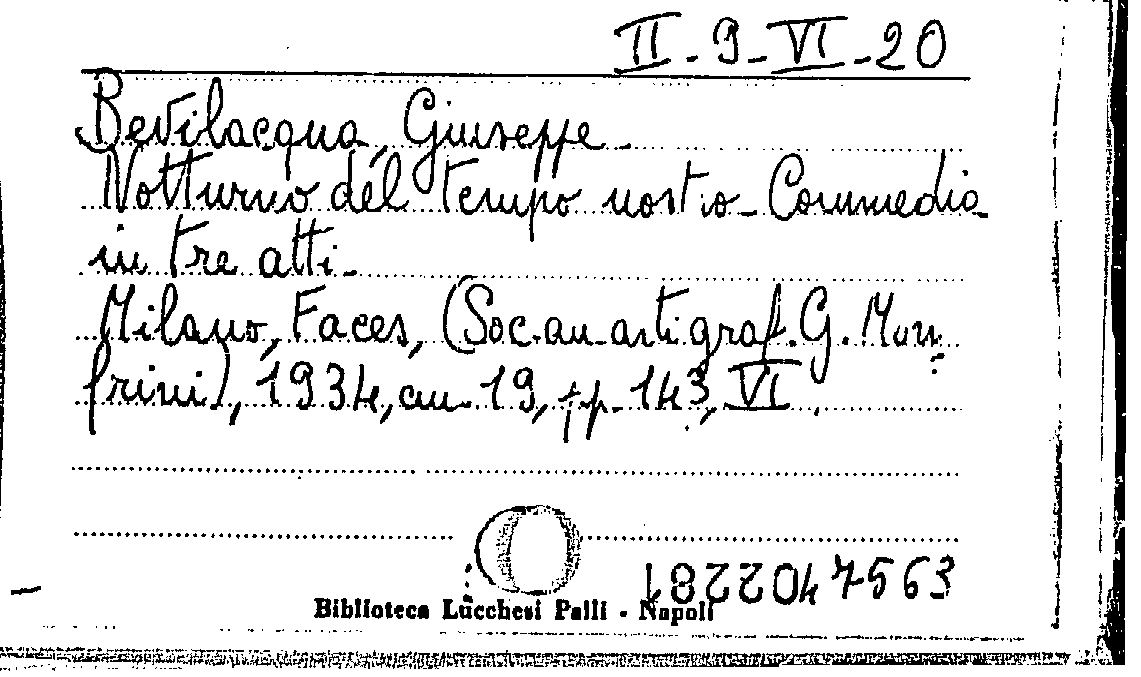 II-9-VI-20
Bevilacqua, Giuseppe-
Notturno del tempo nostro-Commedia
in tre atti-
Milano, Faces, (Soc. an. arti graf. G. Mon
frini), 1934, cm. 19, pp. 143, VI.
047563
Biblioteca Lucchesi Palli - Napoli